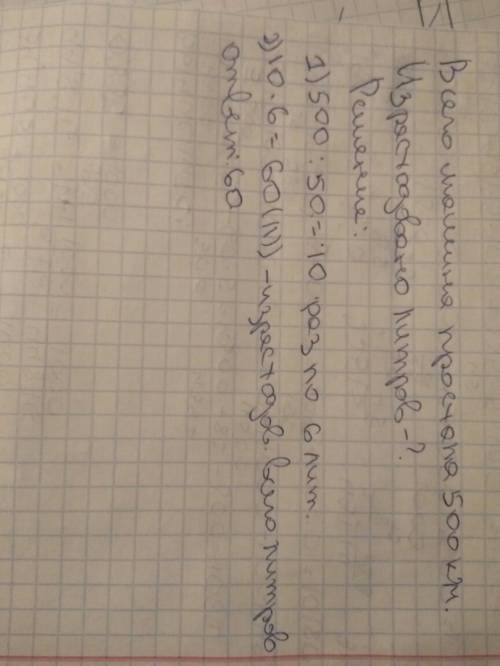 Всего машина проехала 500 км.
Израсходовано литров - ?
Решение:
1) 500 : 50 = 10 раз по 6 лит.
2) 10 . 6 = 60 (л) - израсходов. всего литров
ответ: 60